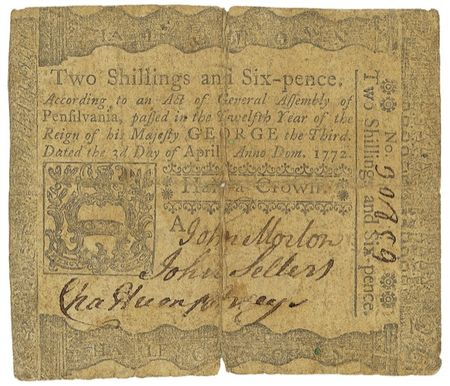 Two Shillings and Six-pence.
According to an Act of General Assembly of
Pensilvania, passed in the Twelfth Year of the
Reign of his Majesty GEORGE the Third.
Dated the 3d Day of April, Anno Dom. 1772.
Half a Crown.
A
John Morton
John Sellers
Cha Humphreys
No.
Two Shillings and Sixpence.